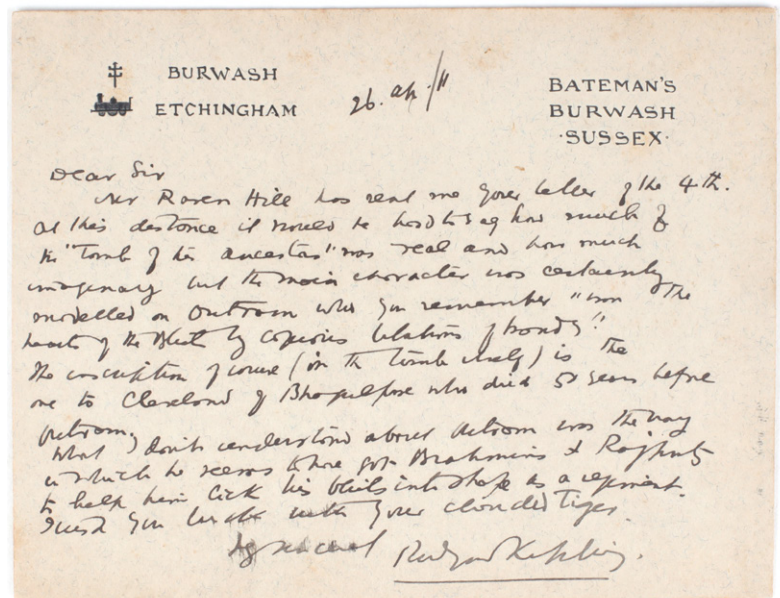 BURWASH
ETCHINGHAM
26. Ap. /11
BATEMAN'S
BURWASH
·SUSSEX·
Dear Sir
Mr Raven Hill has sent me your letter of the 4th.
At this distance it would be hard to say how much of
the "Tomb of his Ancestor" was real and how much
imaginary but the main character was certainly
modelled on Outram who you remember "won the
hearts of the Bhils by copious libations of brandy".
The inscription of course (in the tomb itself) is the
one to Cleveland of Bhagulpore who died 50 years before
Outram.
What I don't understand about Outram was the way
in which he seems to have got Brahmins & Rajputs
to help him lick his Bhils into shape as a regiment.
I wish you luck with your clouded tiger.
Rudyard Kipling.